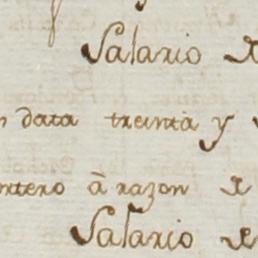 Salario
data treinta y
ntero à razon
Salario